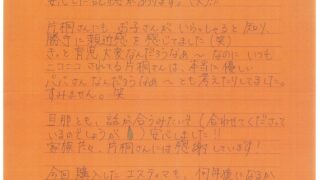 片桐さんにも お子さんが いらっしゃると 知り、
勝手に親近感を感じてました(笑)
きっと育児 大変なんだろうなぁ〜、なのに いつも
ニコニコ されてる片桐さんは、本当に優しい
パパさんなんだろうなぁ〜とも考えたりしてました。
すみません。笑
旦那とも、話が合うみたいで(合わせてくださって
いるのでしょうが)安心しました!!
家族共々、片桐さんには感謝しています!
今回購入した エスティマも、何年後になるか